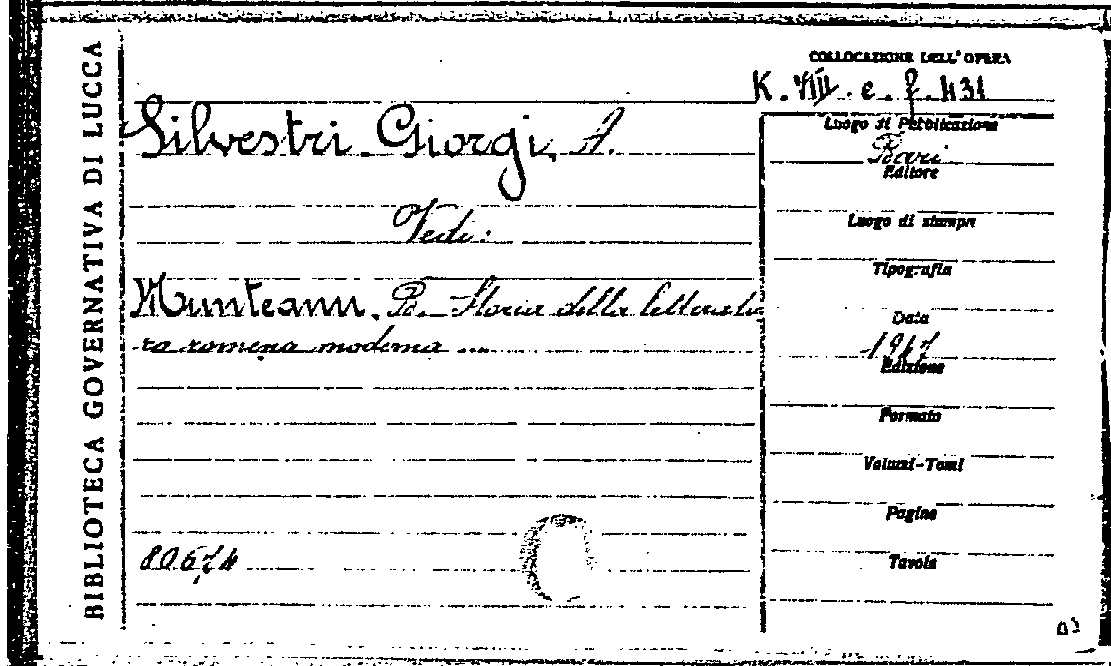 BIBLIOTECA GOVERNATIVA DI LUCCA
COLLOCAZIONE DELL'OPERA
K. VIII. e. f. 431
Silvestri Giorgi, A.
Vedi:
Munteanu, B. - Storia della letteratu
ra romena moderna ...
80674
Luogo di Pubblicazione
Bari
Editore
Luogo di stampa
Tipografia
Data
1967
Edizione
Formato
Volumi-Tomi
Pagine
Tavole